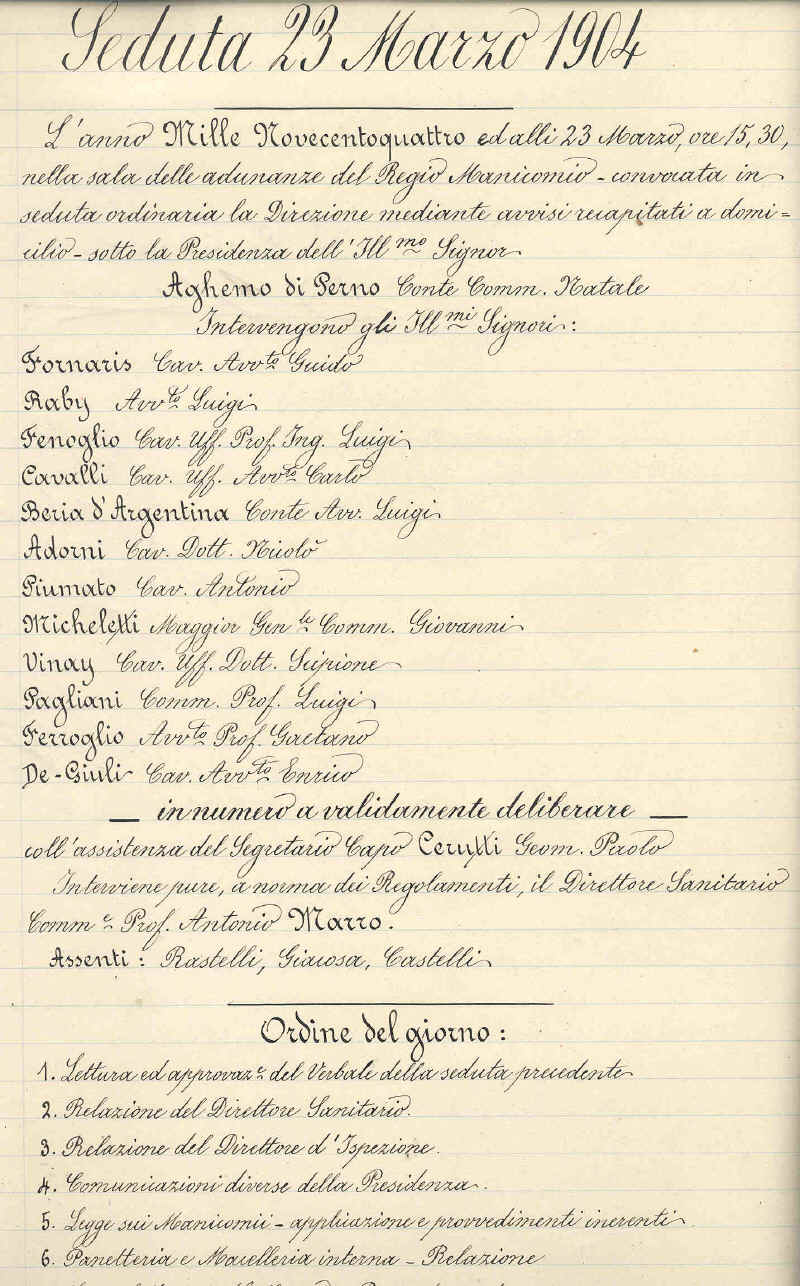 Seduta 23 Marzo 1904
L'anno Mille Novecentoquattro ed alli 23 Marzo, ore 15,30,
nella sala delle adunanze del Regio Manicomio - convocata in
seduta ordinaria la Direzione mediante avvisi recapitati a domi=
cilio - sotto la Presidenza dell'Ill.mo Signor
Aghemo di Perno Conte Comm. Natale
Intervengono gli Ill.mi Signori:
Fornaris Cav. Avv.to Guido
Raby Avv.to Luigi
Fenoglio Cav. Uff. Prof. Ing. Luigi
Cavalli Cav. Uff. Avv.to Carlo
Beria d'Argentina Conte Avv. Luigi
Adorni Cav. Dott. Nicolò
Piumato Cav. Antonio
Micheletti Maggior Gen.le Comm. Giovanni
Vinay Cav. Uff. Dott. Scipione
Pagliani Comm. Prof. Luigi
Ferroglio Avv.to Prof. Gaetano
De-Giuli Cav. Avv.to Enrico
— in numero a validamente deliberare —
coll'assistenza del Segretario Capo Cerutti Geom. Paolo
Interviene pure, a norma dei Regolamenti, il Direttore Sanitario
Comm.e Prof. Antonio Marro.
Assenti: Rastelli, Giacosa, Castelli
Ordine del giorno:
1. Lettura ed approvaz.e del Verbale della seduta precedente
2. Relazione del Direttore Sanitario.
3. Relazione del Direttore d'Ispezione.
4. Comunicazioni diverse della Presidenza.
5. Legge sui Manicomii - applicazione e provvedimenti inerenti.
6. Panetteria e Macelleria interna - Relazione